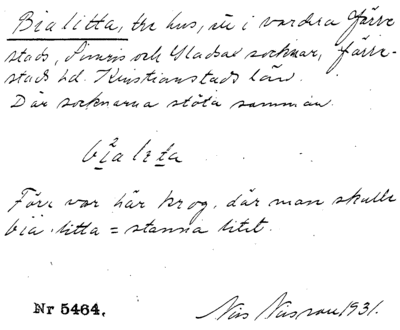 Bialitta, tre hus, ett i vardera Järre-
stads, Simris och Gladsax socknar, Järre-
stads hd. Kristianstads län.
Där socknarna stöta samman.
bialeta
Förr var här krog, där man skulle
bia litta = stanna litet.
Nr 5464.
Nils 1931.